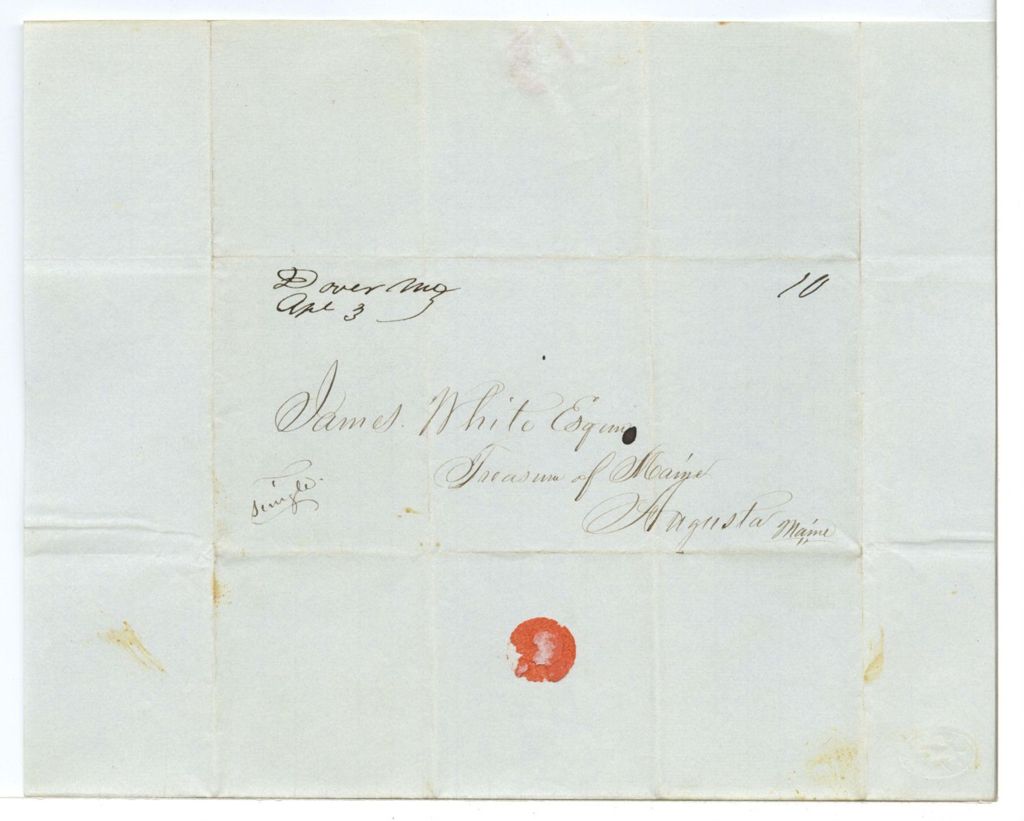 Dover Me
Apl 3
10
James White Esquire
Treasurer of Maine
single
Augusta Maine